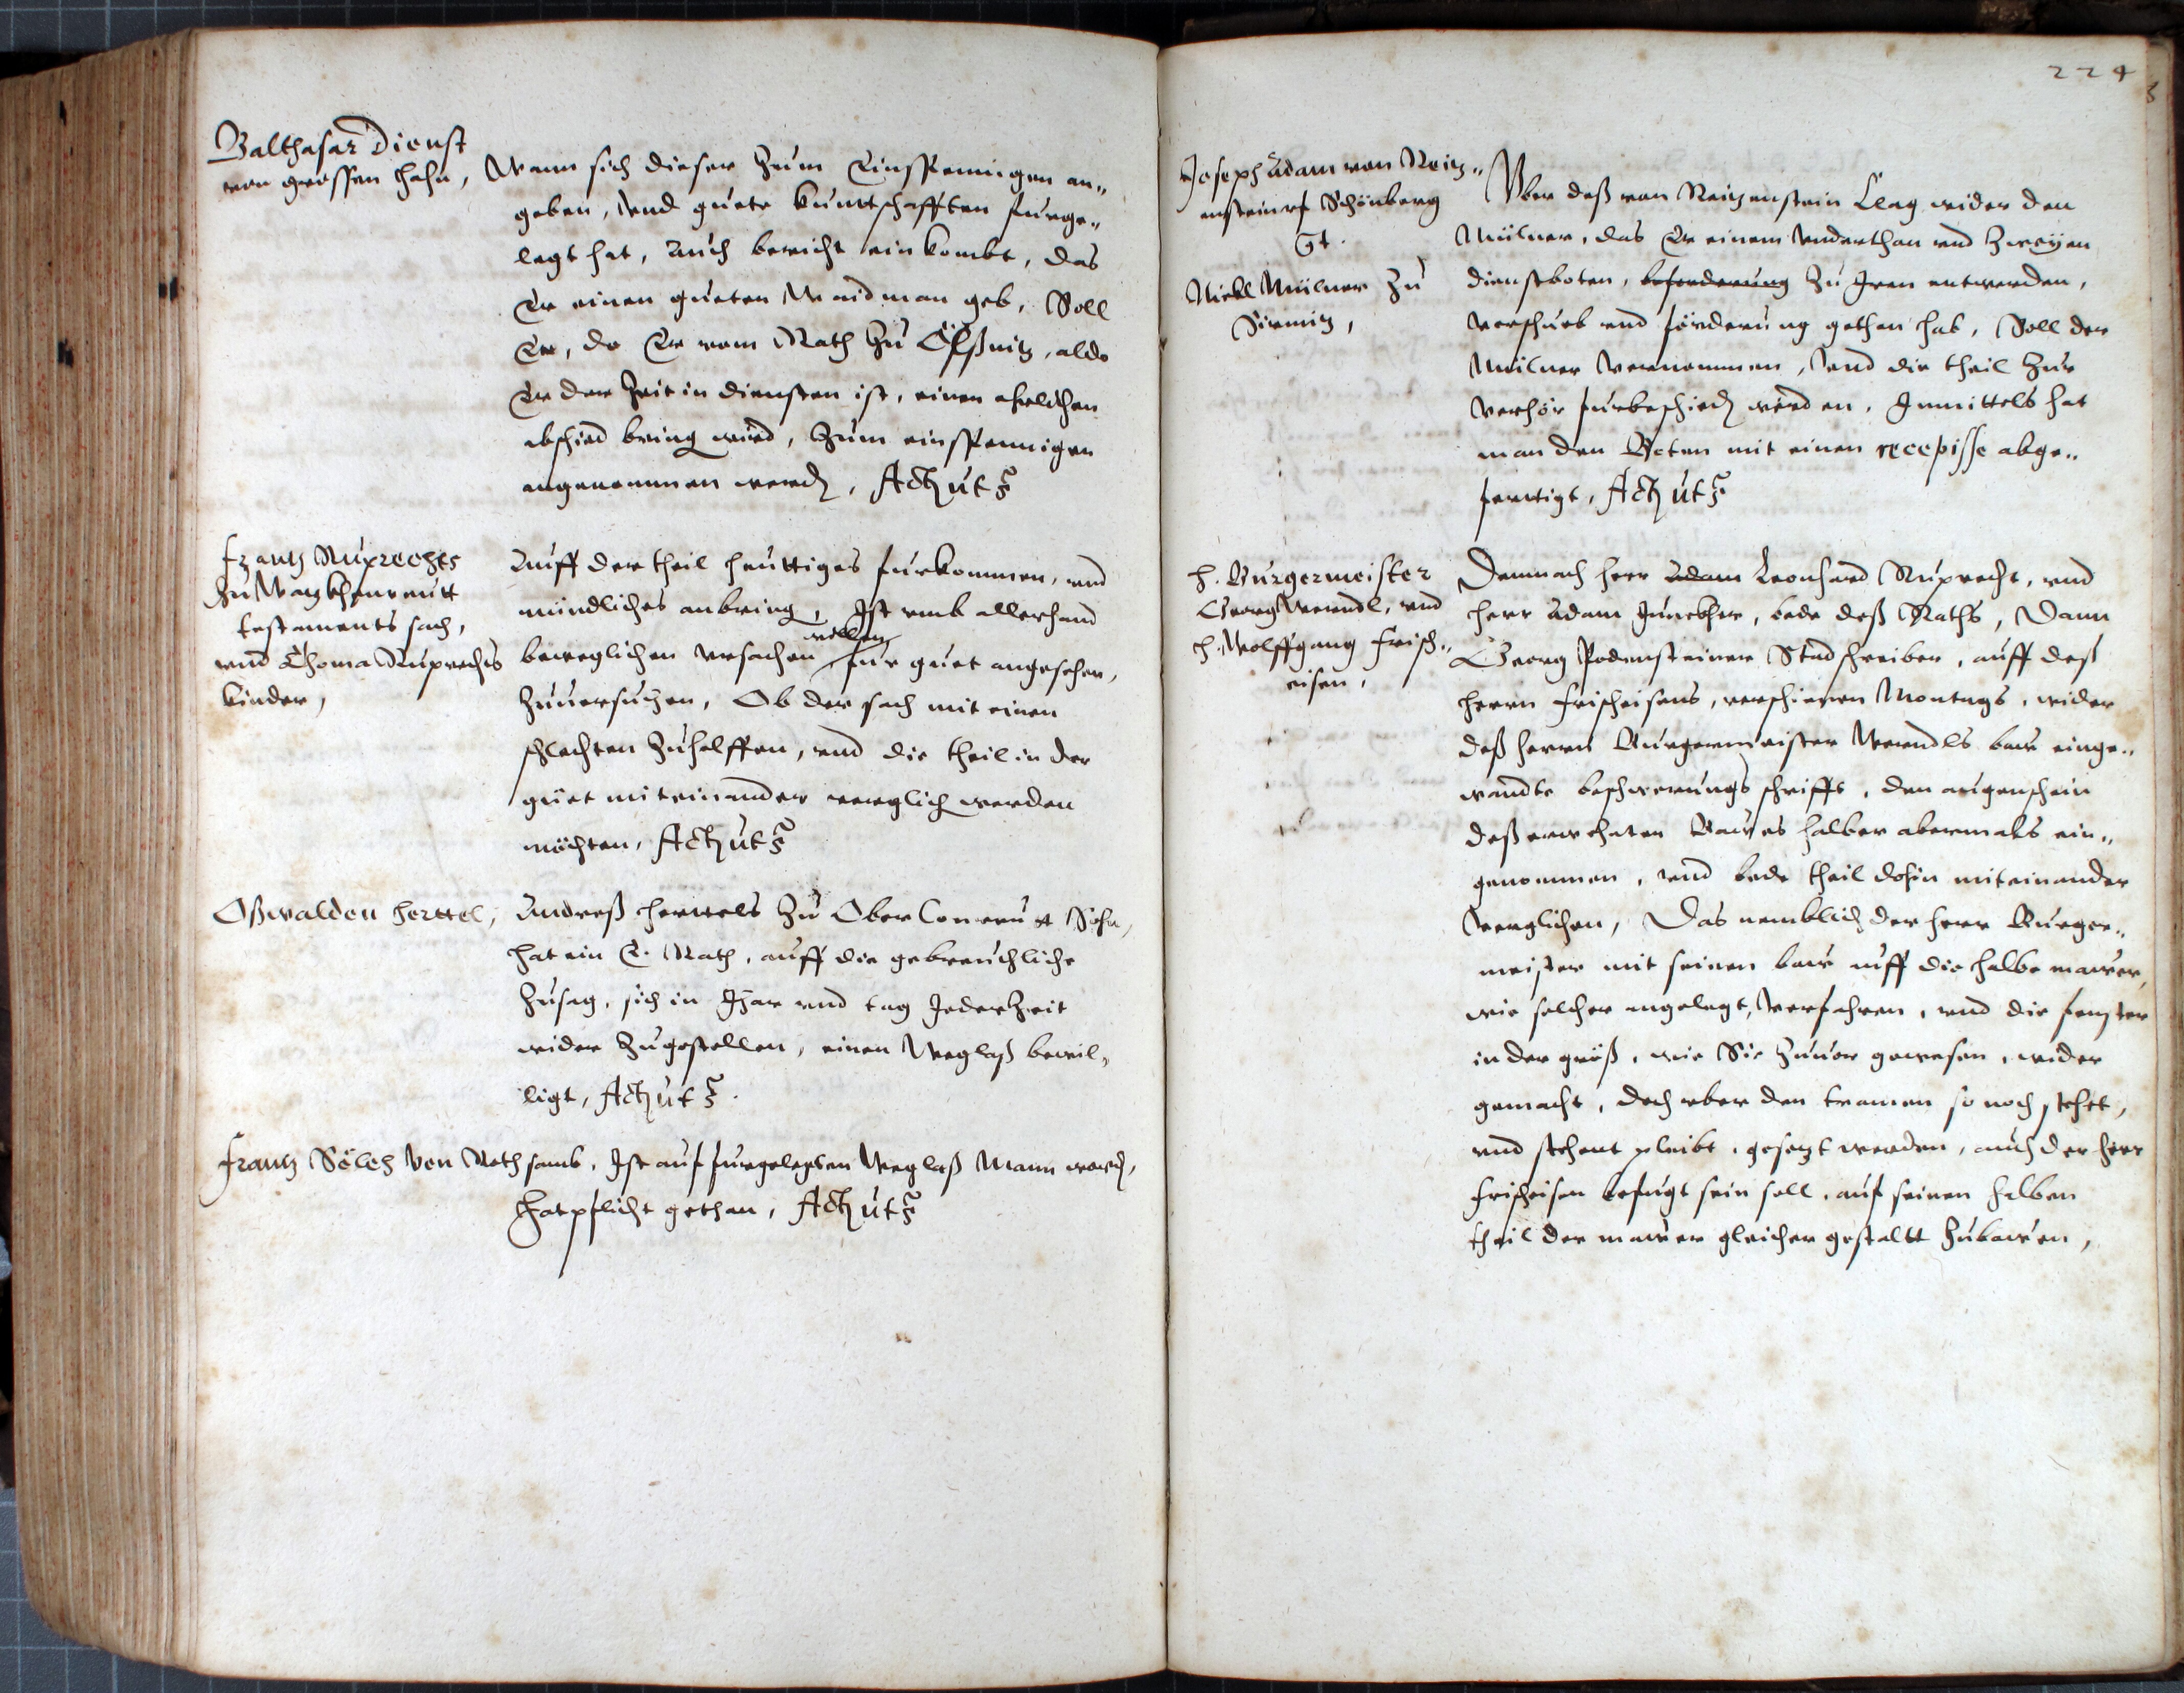 Balthasar Dienst
von grossen Hahn,
Wann sich dieser zum Einspennigen an„
geben, vnd guete kunttschafften furge„
legt hat, Auch bericht einkombt, das
Er einen gueten Waidman geb, Soll
Er, do Er vom Rath zu Ölßnitz, aldo
Er der Zeit in diensten ist, einen ehrlichen
abschied bring wird, Zum einspennigen
angenommen werd, Act. ut s.
Frantz Ruprechts
zu Watzkhenreutt
testaments sach,
vnd Thoma Ruprechts
kinder,
Auff der theil heuttiges furkommen, vnd
mündliches anbring, Ist vmb allerhand
beweglichen vrsachen willen fur guet angesehen,
Zuuersuchen, Ob der sach mit einen
schlechten zuhelffen, vnd die theil in der
güet miteinander verglich werden
möchten, Act. ut s.
Oßwalden Herttel,
Andreß Herttels zu Ober Conreut Sohn,
hat ein E. Rath, auff die gebreuchliche
zusag, sich in Jhar vnd tag Jederzeit
wider zugestellen, einen Weglaß bewil„
ligt, Act. ut s.
Frantz Sölch von Rethsamb, Ist auf furgelegten Weglaß Mann word,
Hat pflicht gethan, Act. ut s.
224
Joseph Adam von Reitz„
enstein vf Schönberg
Ct.
Nickl Mülner zu
Sirmitz,
Vber deß von Reitzenstein Clag wider den
Mülner, das Er einem vnderthan vnd Zweyen
dienstboten, beforderung zu Jren entwerden,
vorschueb vnd förderung gethan hab, Soll der
Mülner vernommen, vnd die theil zur
verhör furbeschied werden, Inmittels hat
man den Boten mit einen recepisse abge„
fertigt, Act. ut s.
H. Burgermeister
Georg Werndl, vnd
H. Wolffgang Frisch„
eisen,
Demnach Herr Adam Leonhard Ruprecht, vnd
Herr Adam Junckher, bede deß Raths, Dann
Georg Podensteiner Stadschreiber, auff deß
Herrn Frischeisens, verschienen Montags, wider
deß Herrn Burgermeister Werndls baw einge„
wandte beschwerungs schrifft, den augenschein
deß erwehnten Bawes halber abermals ein„
genommen, vnd bede theil dohin miteinander
verglichen, Das nemblich der Herr Burger„
meister mit seinen baw auff die halbe mawer,
wie solcher angelegt, verfahren, vnd die fenster
in der größ, wie Sie zuuor gewesen, wider
gemacht, doch vber den tramen so noch stehet,
vnd stehent pleibt, gesetzt werden, auch der Herr
Frischeisen befugt sein soll, auf seinen halben
theil der mawer gleicher gestaltt zubawen,